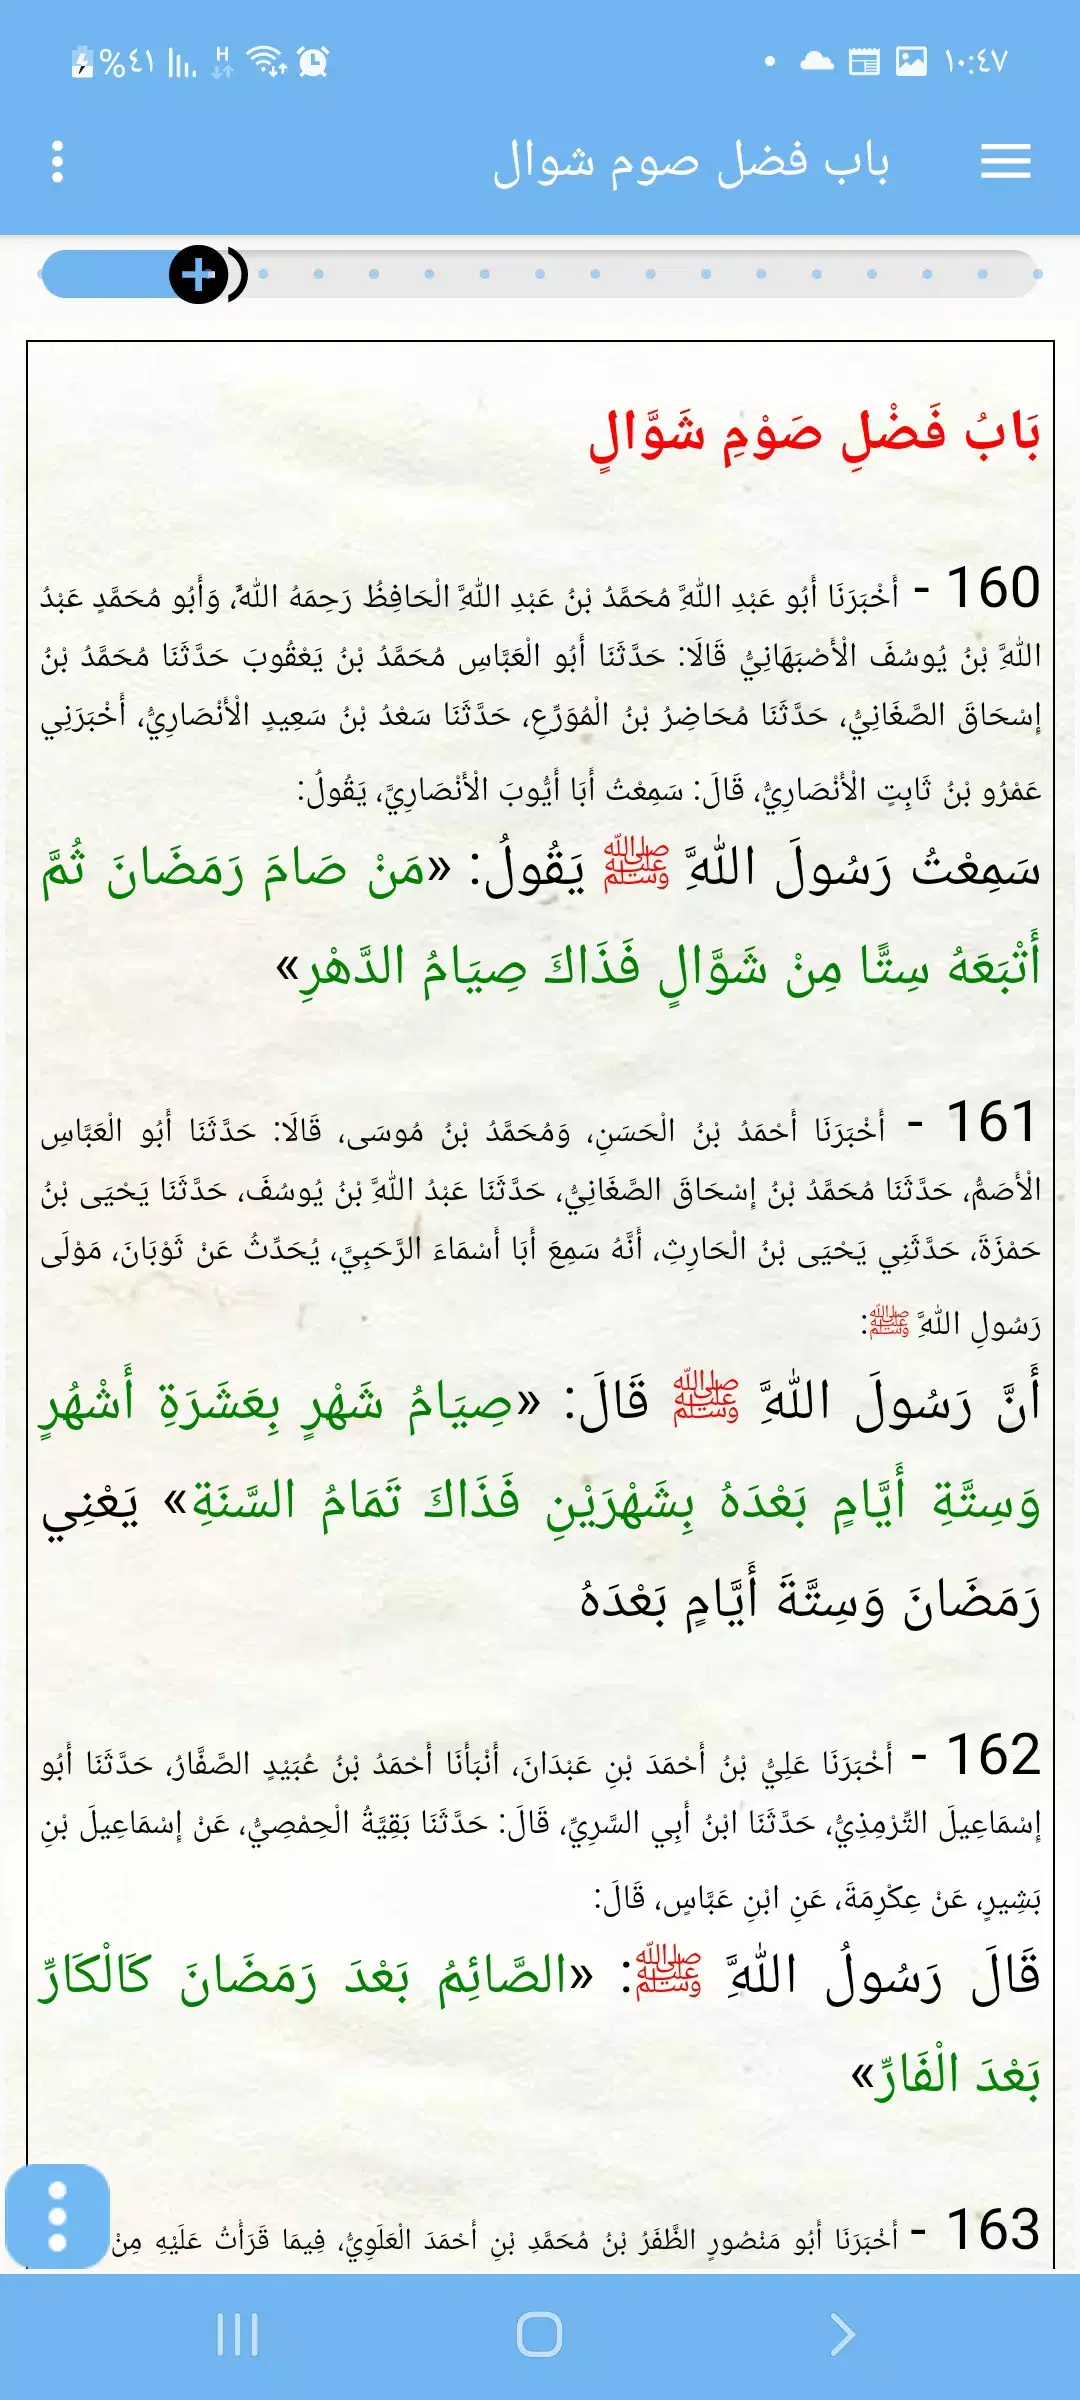 ١٠:٤٧
%٤١
H
باب فضل صوم شوال
بَابُ فَضْلِ صَوْمِ شَوَّالٍ
160 - أَخْبَرَنَا أَبُو عَبْدِ اللَّهِ مُحَمَّدُ بْنُ عَبْدِ اللَّهِ الْحَافِظُ رَحِمَهُ اللَّهُ، وَأَبُو مُحَمَّدٍ عَبْدُ
اللَّهِ بْنُ يُوسُفَ الْأَصْبَهَانِيُّ قَالَا: حَدَّثَنَا أَبُو الْعَبَّاسِ مُحَمَّدُ بْنُ يَعْقُوبَ حَدَّثَنَا مُحَمَّدُ بْنُ
إِسْحَاقَ الصَّغَانِيُّ، حَدَّثَنَا مُحَاضِرُ بْنُ الْمُوَرِّعِ، حَدَّثَنَا سَعْدُ بْنُ سَعِيدٍ الْأَنْصَارِيُّ، أَخْبَرَنِي
عَمْرُو بْنُ ثَابِتٍ الْأَنْصَارِيُّ، قَالَ: سَمِعْتُ أَبَا أَيُّوبَ الْأَنْصَارِيَّ، يَقُولُ:
سَمِعْتُ رَسُولَ اللَّهِ ﷺ يَقُولُ: «مَنْ صَامَ رَمَضَانَ ثُمَّ
أَتْبَعَهُ سِتًّا مِنْ شَوَّالٍ فَذَاكَ صِيَامُ الدَّهْرِ»
161 - أَخْبَرَنَا أَحْمَدُ بْنُ الْحَسَنِ، وَمُحَمَّدُ بْنُ مُوسَى، قَالَا: حَدَّثَنَا أَبُو الْعَبَّاسِ
الْأَصَمُّ، حَدَّثَنَا مُحَمَّدُ بْنُ إِسْحَاقَ الصَّغَانِيُّ، حَدَّثَنَا عَبْدُ اللَّهِ بْنُ يُوسُفَ، حَدَّثَنَا يَحْيَى بْنُ
حَمْزَةَ، حَدَّثَنِي يَحْيَى بْنُ الْحَارِثِ، أَنَّهُ سَمِعَ أَبَا أَسْمَاءَ الرَّحَبِيَّ، يُحَدِّثُ عَنْ ثَوْبَانَ، مَوْلَى
رَسُولِ اللَّهِ ﷺ:
أَنَّ رَسُولَ اللَّهِ ﷺ قَالَ: «صِيَامُ شَهْرٍ بِعَشَرَةِ أَشْهُرٍ
وَسِتَّةِ أَيَّامٍ بَعْدَهُ بِشَهْرَيْنِ فَذَاكَ تَمَامُ السَّنَةِ» يَعْنِي
رَمَضَانَ وَسِتَّةَ أَيَّامٍ بَعْدَهُ
162 - أَخْبَرَنَا عَلِيُّ بْنُ أَحْمَدَ بْنِ عَبْدَانَ، أَنْبَأَنَا أَحْمَدُ بْنُ عُبَيْدٍ الصَّفَّارُ، حَدَّثَنَا أَبُو
إِسْمَاعِيلَ التِّرْمِذِيُّ، حَدَّثَنَا ابْنُ أَبِي السَّرِيِّ، قَالَ: حَدَّثَنَا بَقِيَّةُ الْحِمْصِيُّ، عَنْ إِسْمَاعِيلَ بْنِ
بَشِيرٍ، عَنْ عِكْرِمَةَ، عَنِ ابْنِ عَبَّاسٍ، قَالَ:
قَالَ رَسُولُ اللَّهِ ﷺ: «الصَّائِمُ بَعْدَ رَمَضَانَ كَالْكَارِّ
بَعْدَ الْفَارِّ»
163 - أَخْبَرَنَا أَبُو مَنْصُورٍ الظَّفَرُ بْنُ مُحَمَّدِ بْنِ أَحْمَدَ الْعَلَوِيُّ، فِيمَا قَرَأْتُ عَلَيْهِ مِنْ